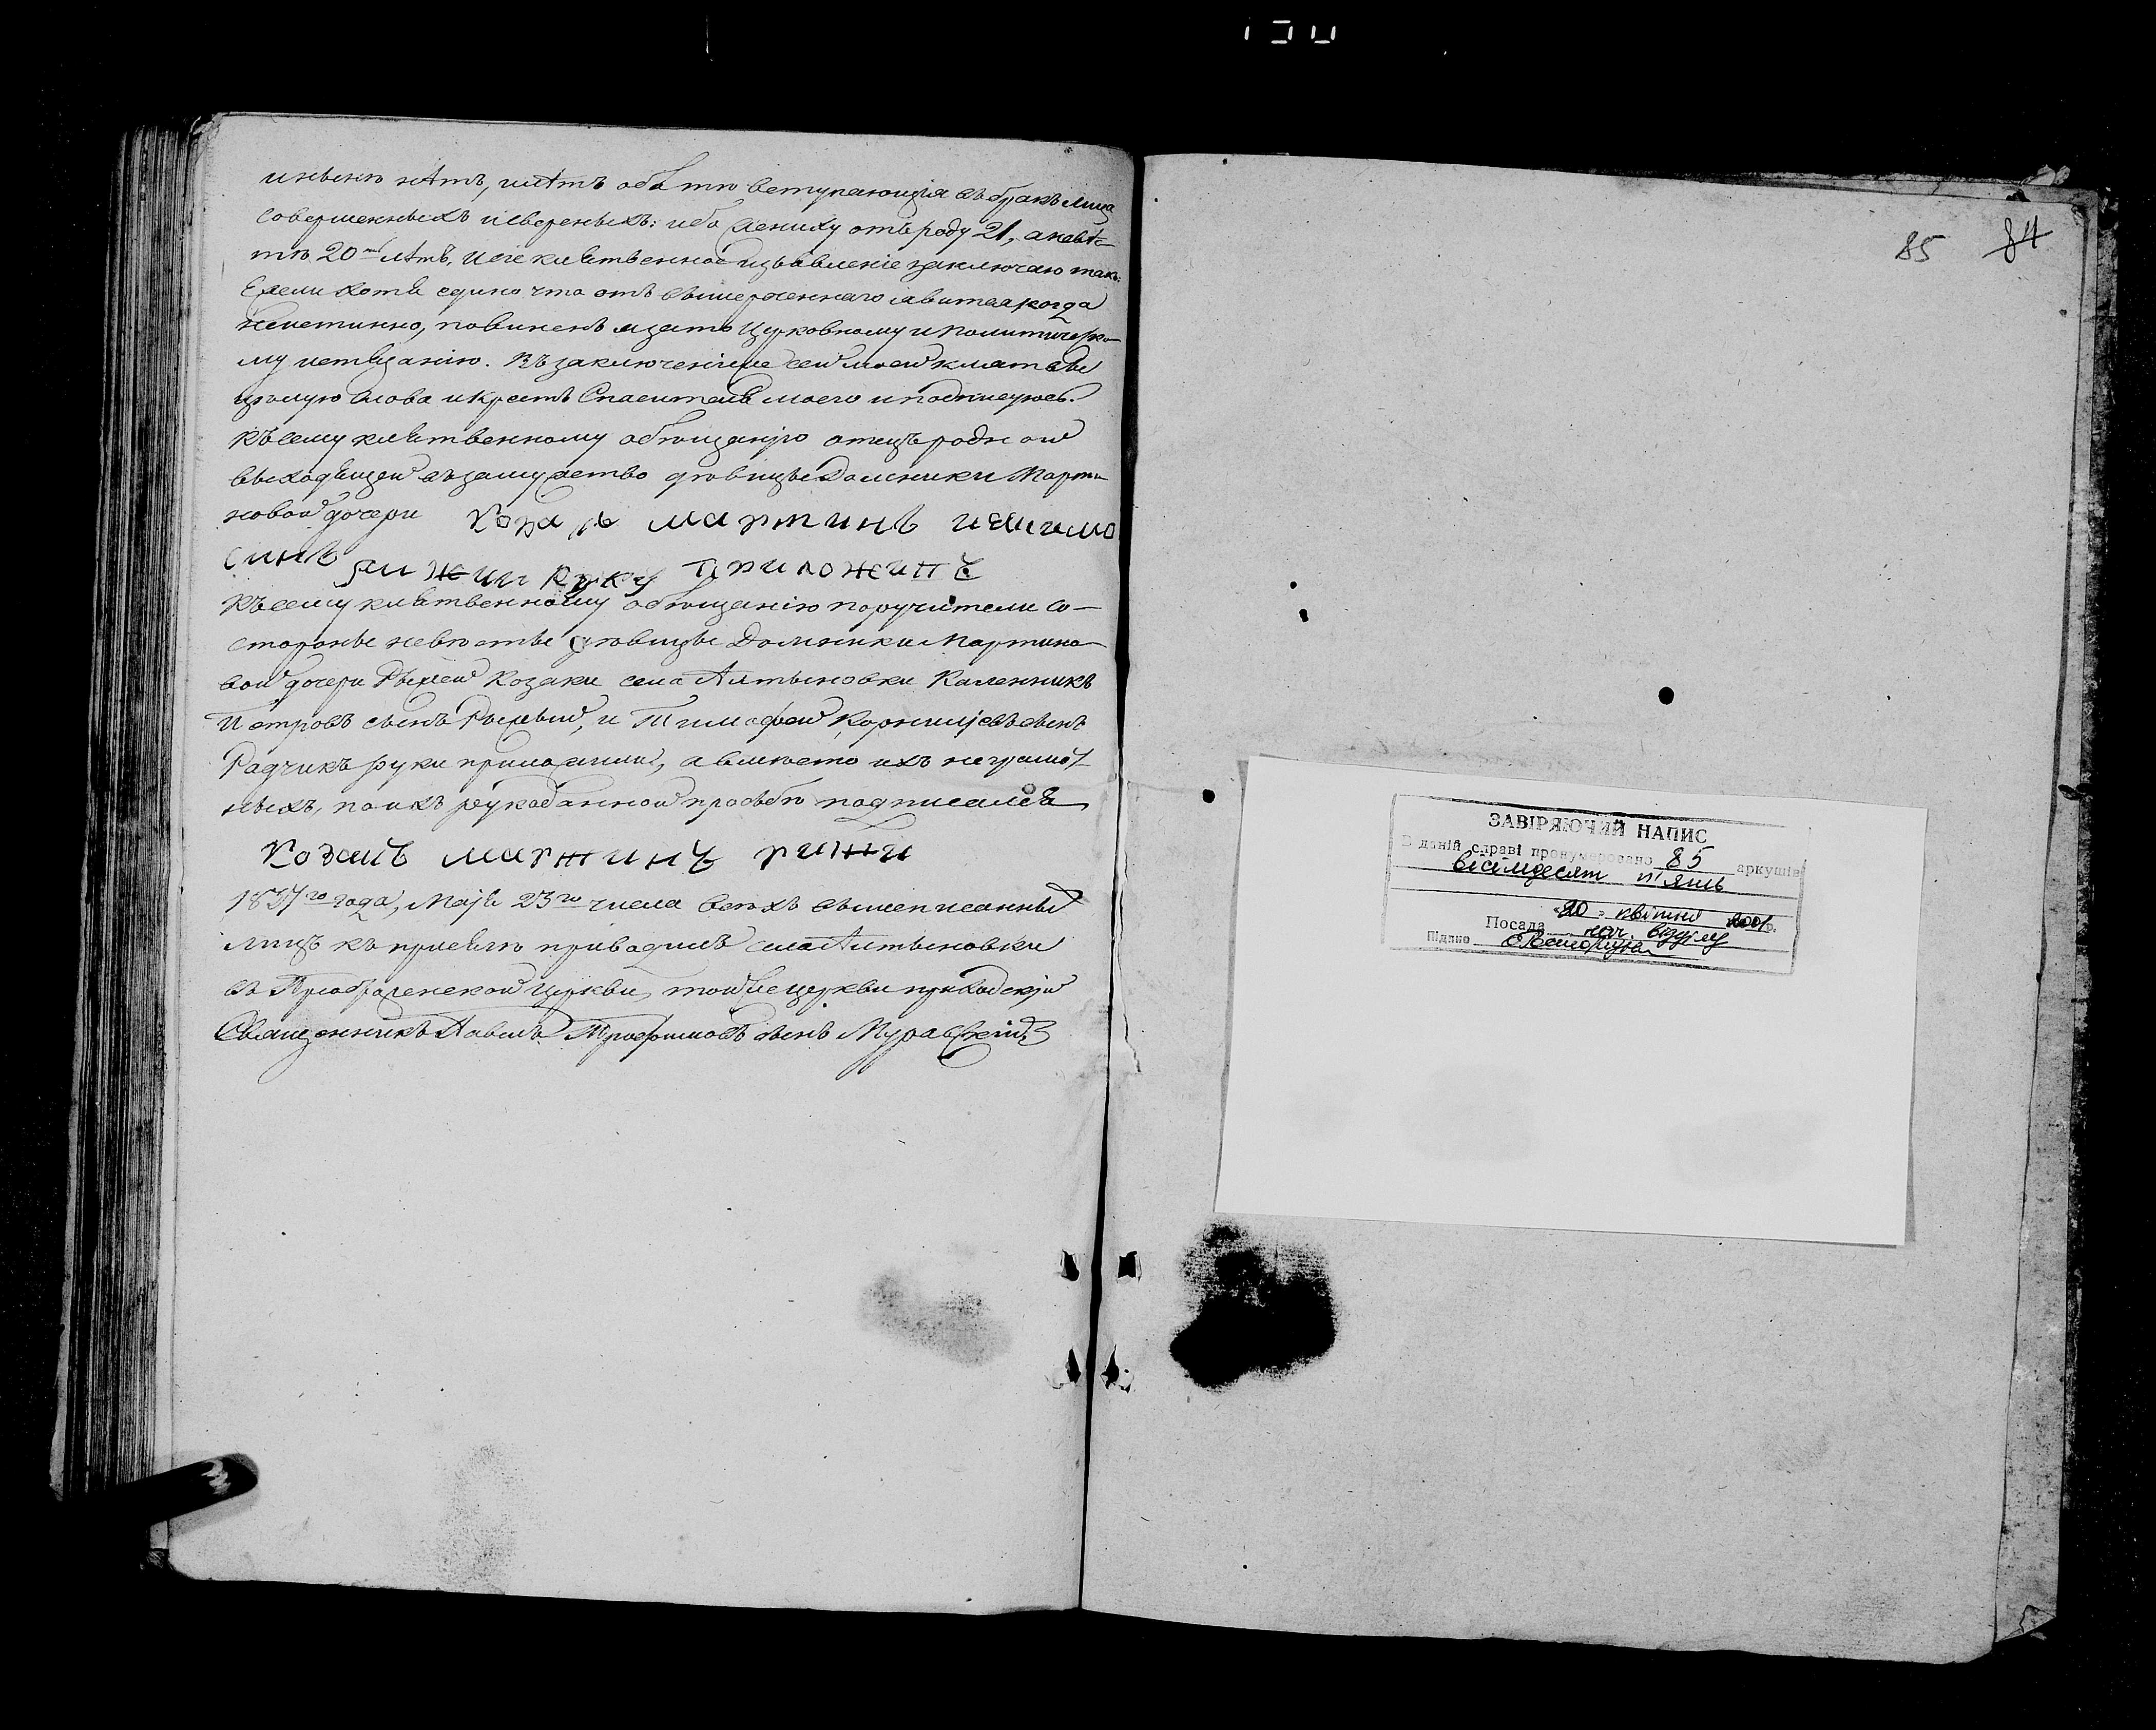 и ныне летъ, летъ оба то вступающія въ бракъ лица
совершенныхъ и сверсныхъ: ибо жениху отъ роду 21, а невѣс-
тѣ 20ть лѣтъ, и сіе клятвенное изъявленіе заключаю такъ:
Ежели хотя едино что отъ вышереченнаго явится когда
неистинно, повиненъ я зато Церковному и политическо-
му истязанію. Въ заключеніе сей моей клятвы
цѣлую слова и крестъ Спасителя моего и подписуюсь.
Къ сему клятвенному обѣщанію отецъ родной
выходящей въ замужство дѣвицы Домники Марти-
новой дочери Козакъ мартинъ
синъ рижии руку приложилъ
Къ сему клятвенному обѣщанію поручители со
стороны невѣсты дѣвицы Домники Мартино-
вой дочери Рыжей Козаки села Алтыновки Каленникъ
Петровъ сынъ Рыжый, и Тимофей Корніліевъ сынъ
Радчикъ руки приложили, а вмѣсто ихъ неграмот-
ныхъ, по ихъ рукоданной просьбѣ подписался
козакъ мартинъ рижи
1837го года, Маія 23го числа всѣхъ вышеписанныхъ
лицъ къ присягѣ приводилъ села Алтыновки
въ Преображенской церкви, той же церкви приходскій
Священникъ Павелъ Трофимовъ сынъ Муравскій
85 84
ЗАВІРЯЮЧИЙ НАПИС
В даній справі пронумеровано 85 аркушів
вісімдесят п'ять
«20» квітня 2001р.
Посада нач. відділу
Підпис